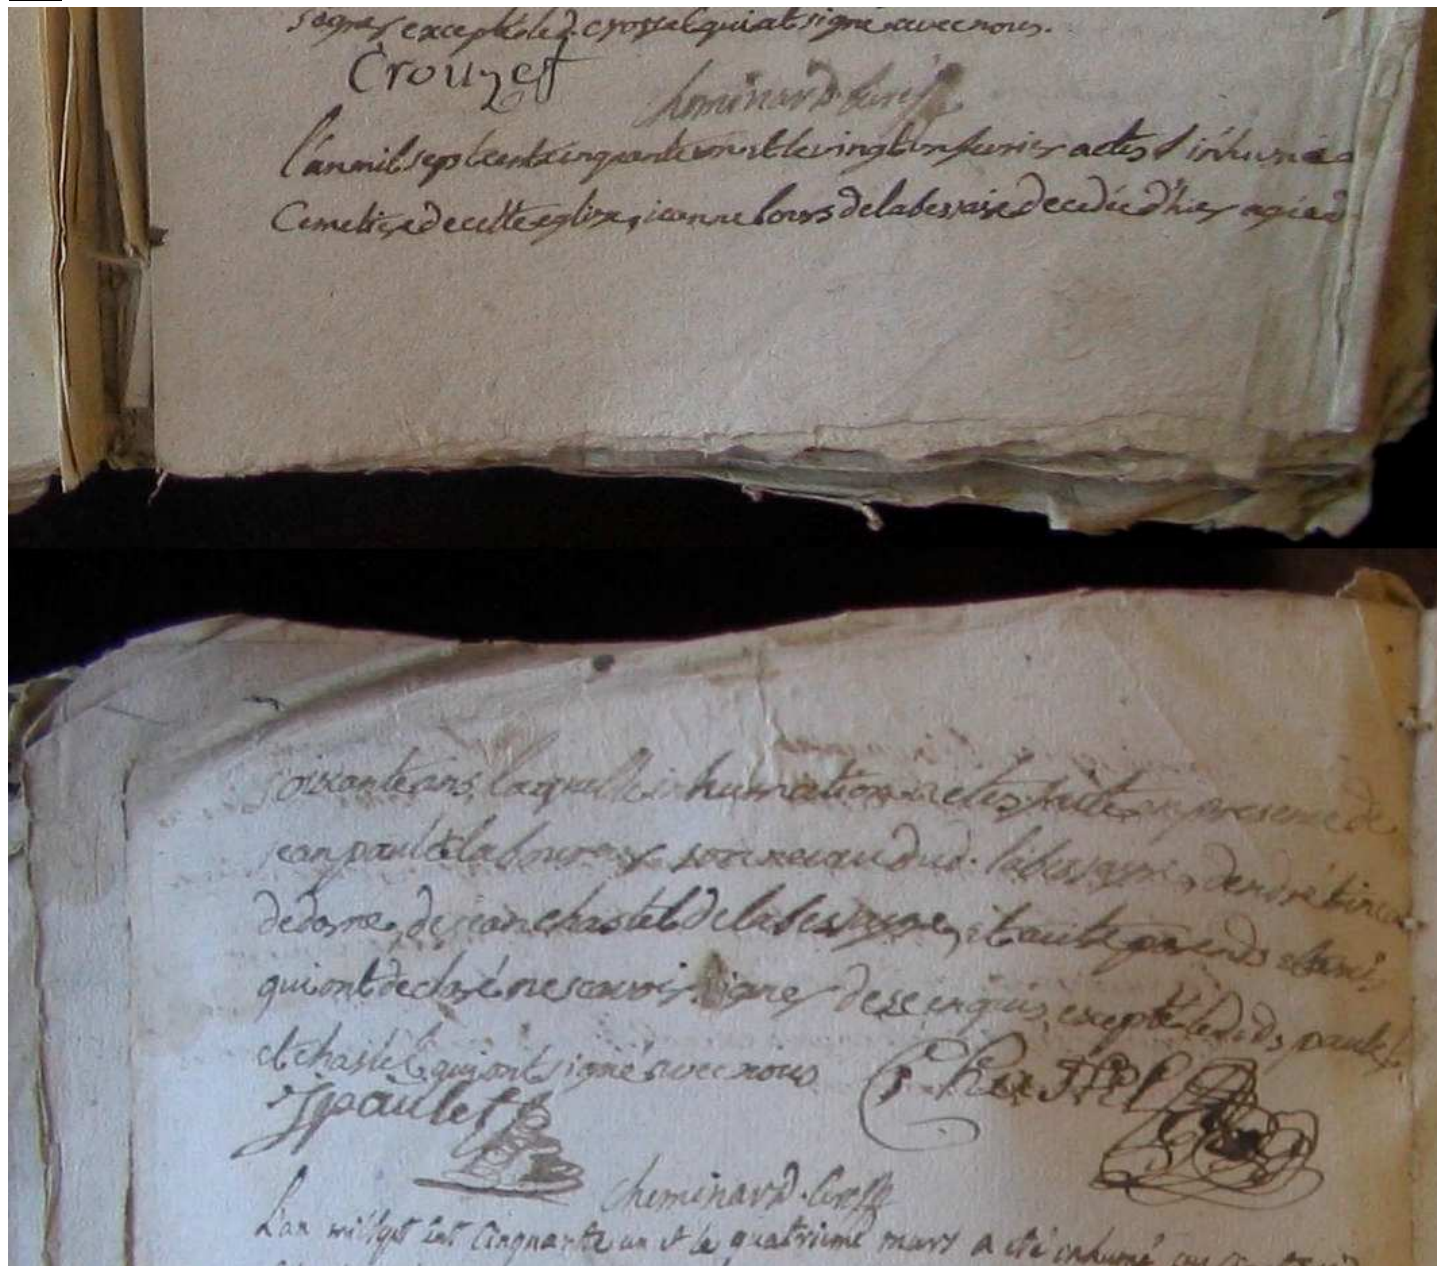 signer excepté led. crozat qui at signé avec nous.
Crouzet
Cheminard curé
l'an mil sept cent cinquante un et le vingt un fevrier a etes inhumée
Cemetiere de cette eglize, jeanne bours de labessaire decedée d'hier agiée d
soixante ans, laquelle inhumation a etes faite en presence de
jean paulet laboureur son neveu dud. labessayre, d'endré
de darnes, de jean chastel de labessayre, et autres parends et amis
qui ont declaré ne scavoir signer de ce enquis excepté lesdids, paulet
et chastel qui ont signé avec nous
J paulet
J. Chastel
Cheminard. Curé
L'an mil sept cent Cinquante un et le quatrieme mars a été inhumé